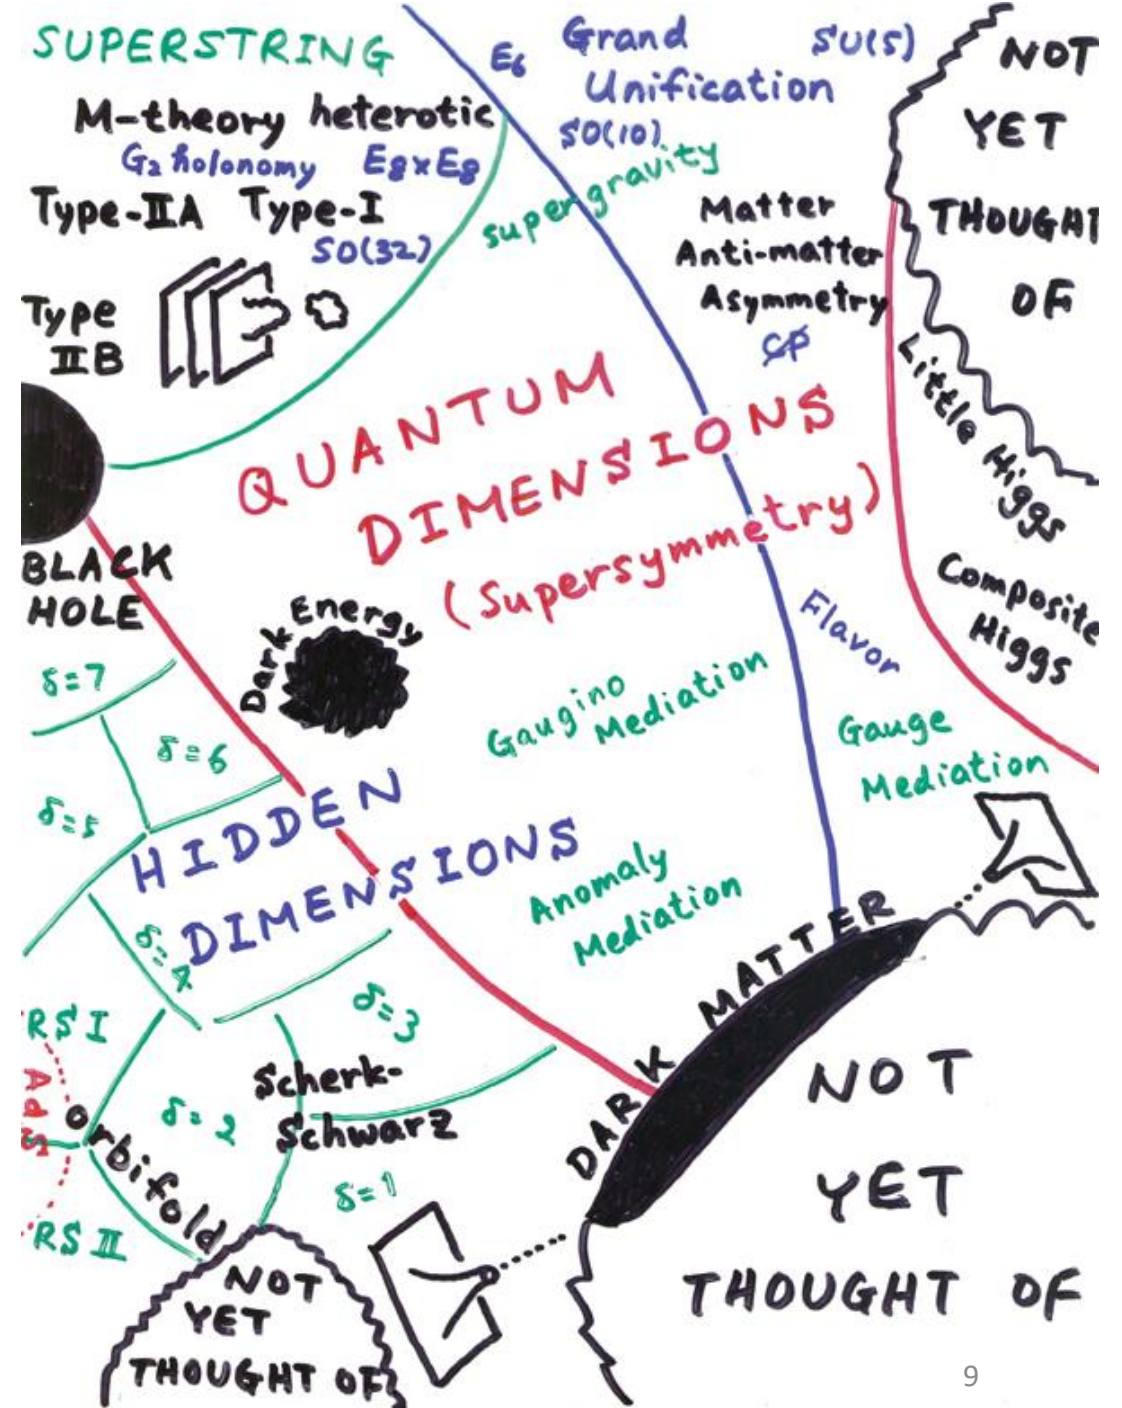 SUPERSTRING
M-theory heterotic
G2 holonomy E8xE8
Type-IIA Type-I
SO(32)
Type
IIB
E6
Grand
Unification
SU(5)
SO(10)
supergravity
Matter
Anti-matter
Asymmetry
CP
NOT
YET
THOUGHT
OF
Little Higgs
Composite
Higgs
QUANTUM
DIMENSIONS
(Supersymmetry)
BLACK
HOLE
Dark Energy
Flavor
Gaugino
Mediation
Gauge
Mediation
δ=7
δ=6
δ=5
HIDDEN
DIMENSIONS
Anomaly
Mediation
δ=4
δ=3
DARK MATTER
RS I
AdS
orbifold
δ=2
Scherk-
Schwarz
δ=1
RS II
NOT
YET
THOUGHT OF
NOT
YET
THOUGHT OF
9